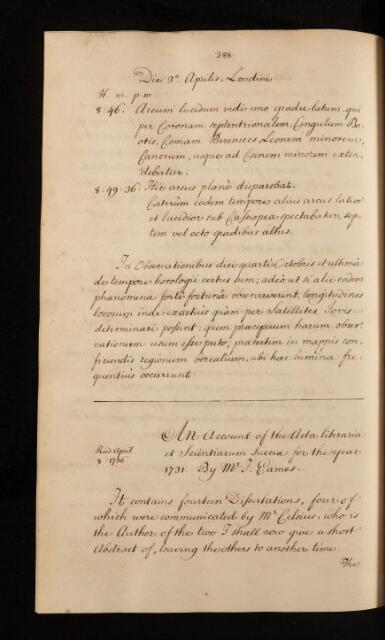 388
Die 3º Aprilis, Londini.
H. m. p.m.
8. 46. Arcum lucidum vidi uno gradu latum, qui
per Coronam septentrionalem, Cingulum Bo-
otis, Comam Berenices, Leonem minorem,
Cancrum, usque ad Canem minorem exten-
debatur.
8. 49. 36. Hic arcus planè disparebat.
Cæterùm eodem tempore alius arcus latior
et lucidior sub Cassiopea spectabatur, sep-
tem vel octo gradibus altus.
In Observationibus diei quarti Octobris et ultimâ
de tempore horologii certus sum; adeò ut si alii eadem
phænomena fortè fortunâ observaverint, longitudines
locorum inde exactius quàm per Satellites Jovis
determinari possint: quem præcipuum harum obser-
vationum usum esse puto, præsertim in mappis con-
ficiendis regionum borealium, ubi hæc lumina fre-
quentius occurrunt.
An Account of the Acta literaria
Read April
8. 1736.
et Scientiarum Sueciæ for the year
1731. By Mr. J. Eames.
It contains fourteen Dissertations, four of
which were communicated by Mr. Celsius, who is
the Author of the two I shall now give a short
Abstract of, leaving the others to another time.
The